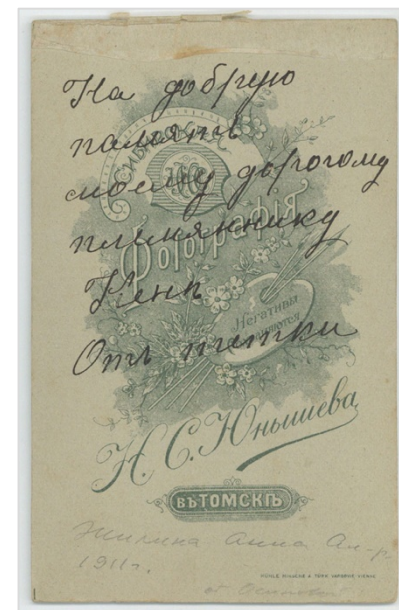 На добрую
память
моему дорогому
племяннику
Генѣ
Отъ тетки
СИБИРСКАЯ
Фотографія
Негативы
хранятся
Н. С. Юнышева
ВЪ ТОМСКѢ
Жилина Анна Ал-р.
1911 г.